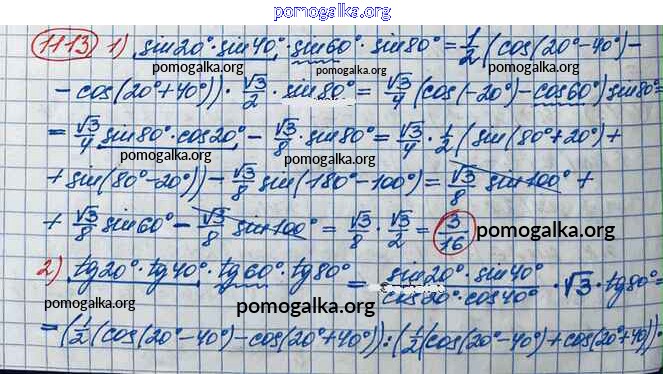 pomogalka.org
1113 1) sin20°·sin40°·sin60°·sin80° = 1/2 (cos(20°-40°)-
pomogalka.org pomogalka.org
- cos(20°+40°))· √3/2 · sin80° = √3/4 (cos(-20°) - cos60°) sin80° =
= √3/4 sin80°·cos20° - √3/8 · sin80° = √3/4 · 1/2 (sin(80°+20°)+
pomogalka.org pomogalka.org
+ sin(80°-20°)) - √3/8 sin(180°-100°) = √3/8 sin100° +
+ √3/8 sin60° - √3/8 sin100° = √3/8 · √3/2 = 3/16 pomogalka.org
pomogalka.org
2) tg20°·tg40°·tg60°·tg80° = sin20°·sin40°/cos20°·cos40° · √3 · tg80° =
pomogalka.org
pomogalka.org
= (1/2 (cos(20°-40°) - cos(20°+40°)) : (1/2 (cos(20°-40°) + cos(20°+40°))·
pomogalka.org